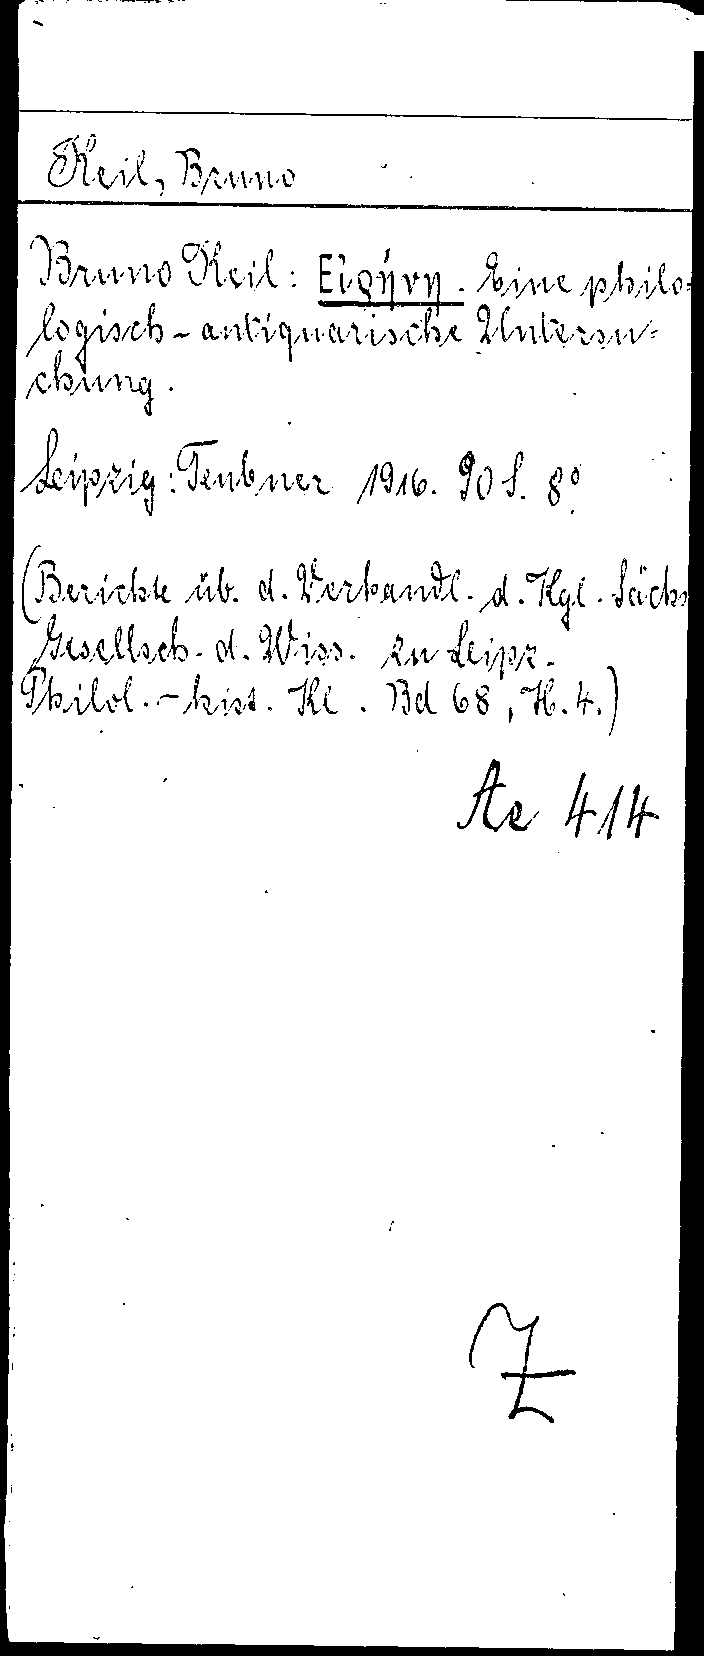 Keil, Bruno
Bruno Keil: Εἰρήνη. Eine philo-
logisch-antiquarische Untersu-
chung.
Leipzig: Teubner 1916. 90 S. 8°.
(Berichte üb. d. Verhandl. d. Kgl. Sächs
Gesellsch. d. Wiss. zu Leipz.
Philol.-hist. Kl. Bd 68, H. 4.)
Ae 414
Z